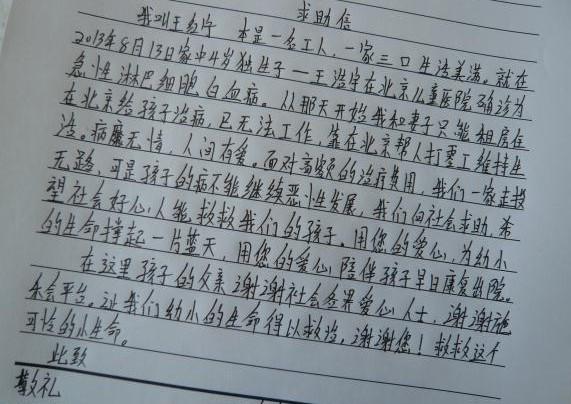 求助信
我叫王 宁 本是一名工人，一家三口生活美满。就在
2013年8月13日家中4岁独生子一王浩宇在北京儿童医院确诊为
急性淋巴细胞白血病。从那天开始我和妻子只能租房住
在北京给孩子治病，已无法工作，靠在北京帮人打零工维持生
活。病魔无情，人间有爱。面对高额的治疗费用，我们一家走投
无路，可是孩子的病不能继续恶性发展，我们向社会求助，希
望社会好心人能救救我们的孩子。用您的爱心，为幼小
的生命撑起一片蓝天，用您的爱心陪伴孩子早日康复出院。
在这里孩子的父亲谢谢社会各界爱心人士，谢谢施
乐会平台。让我们幼小的生命得以救治，谢谢您！救救这个
可怜的小生命。
此致
敬礼